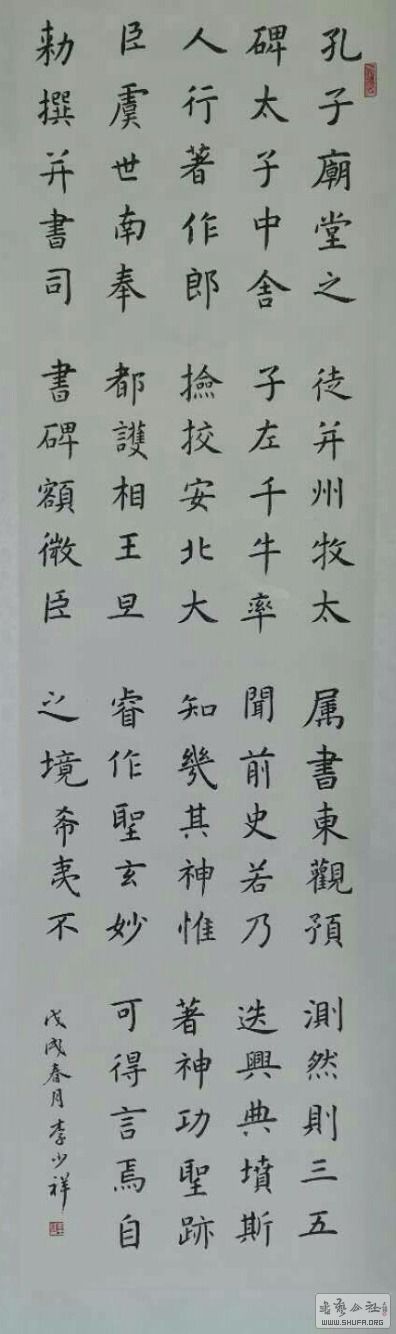 孔子廟堂之
碑太子中舍
人行著作郎
臣虞世南奉
勅撰并書司
徒并州牧太
子左千牛率
撿挍安北大
都護相王旦
書碑額微臣
属書東觀預
聞前史若乃
知幾其神惟
睿作聖玄妙
之境希夷不
測然則三五
迭興典墳斯
著神功聖跡
可得言焉自
戊戌春月李少祥
书艺公社
WWW.SHUFA.ORG